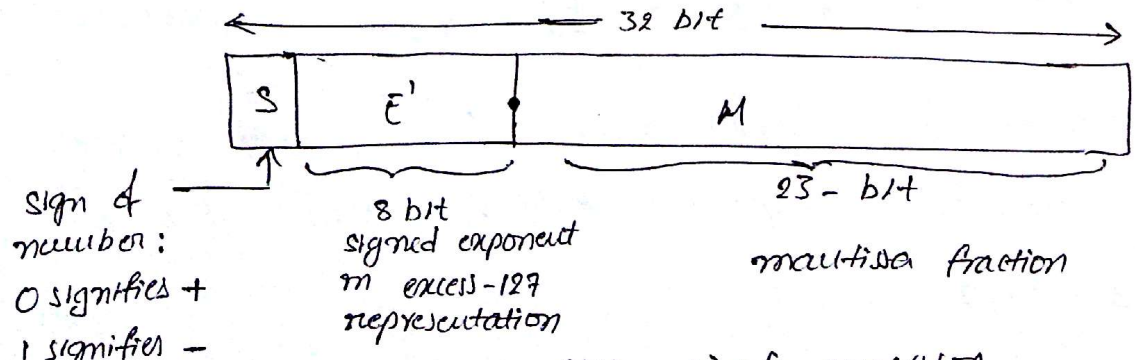 32 bit
S E' M
sign of
number:
0 signifies +
1 signifies -
8 bit
signed exponent
in excess-127
representation
23-bit
mantissa fraction